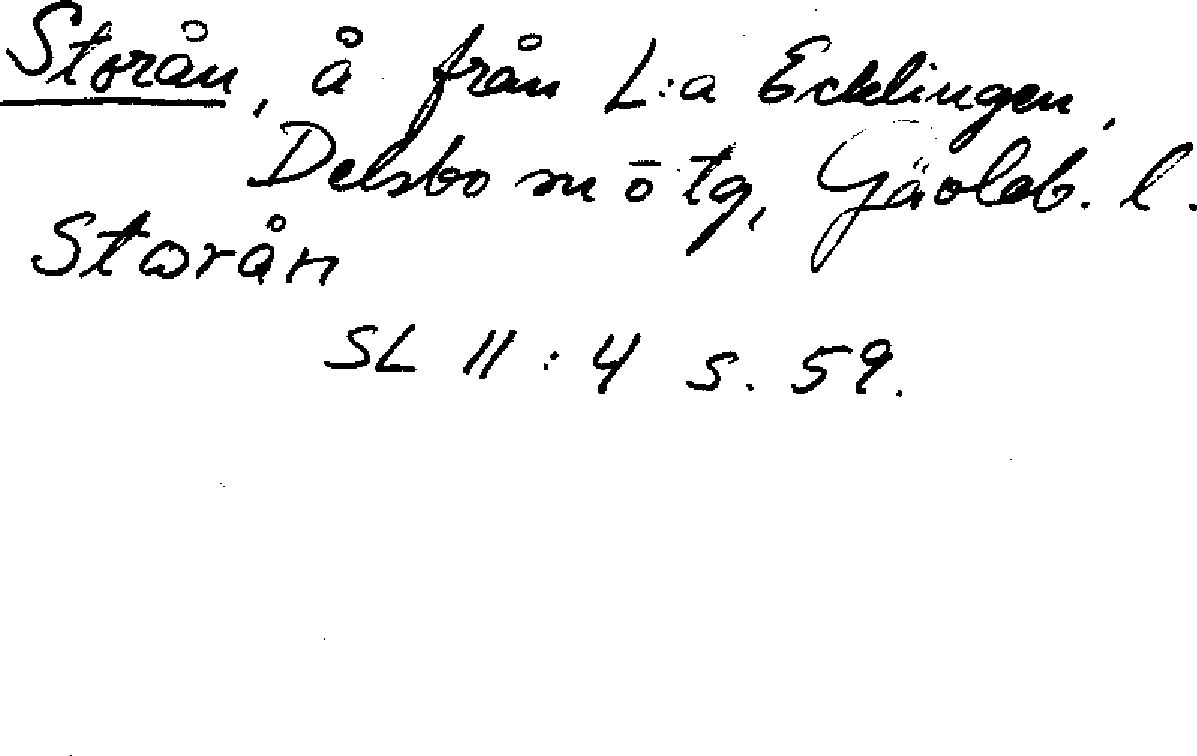 Storån, å från L:a Ecklingen,
Delsbo sn o tg, Gävleb. l.
Storån
SL 11:4 s. 59.